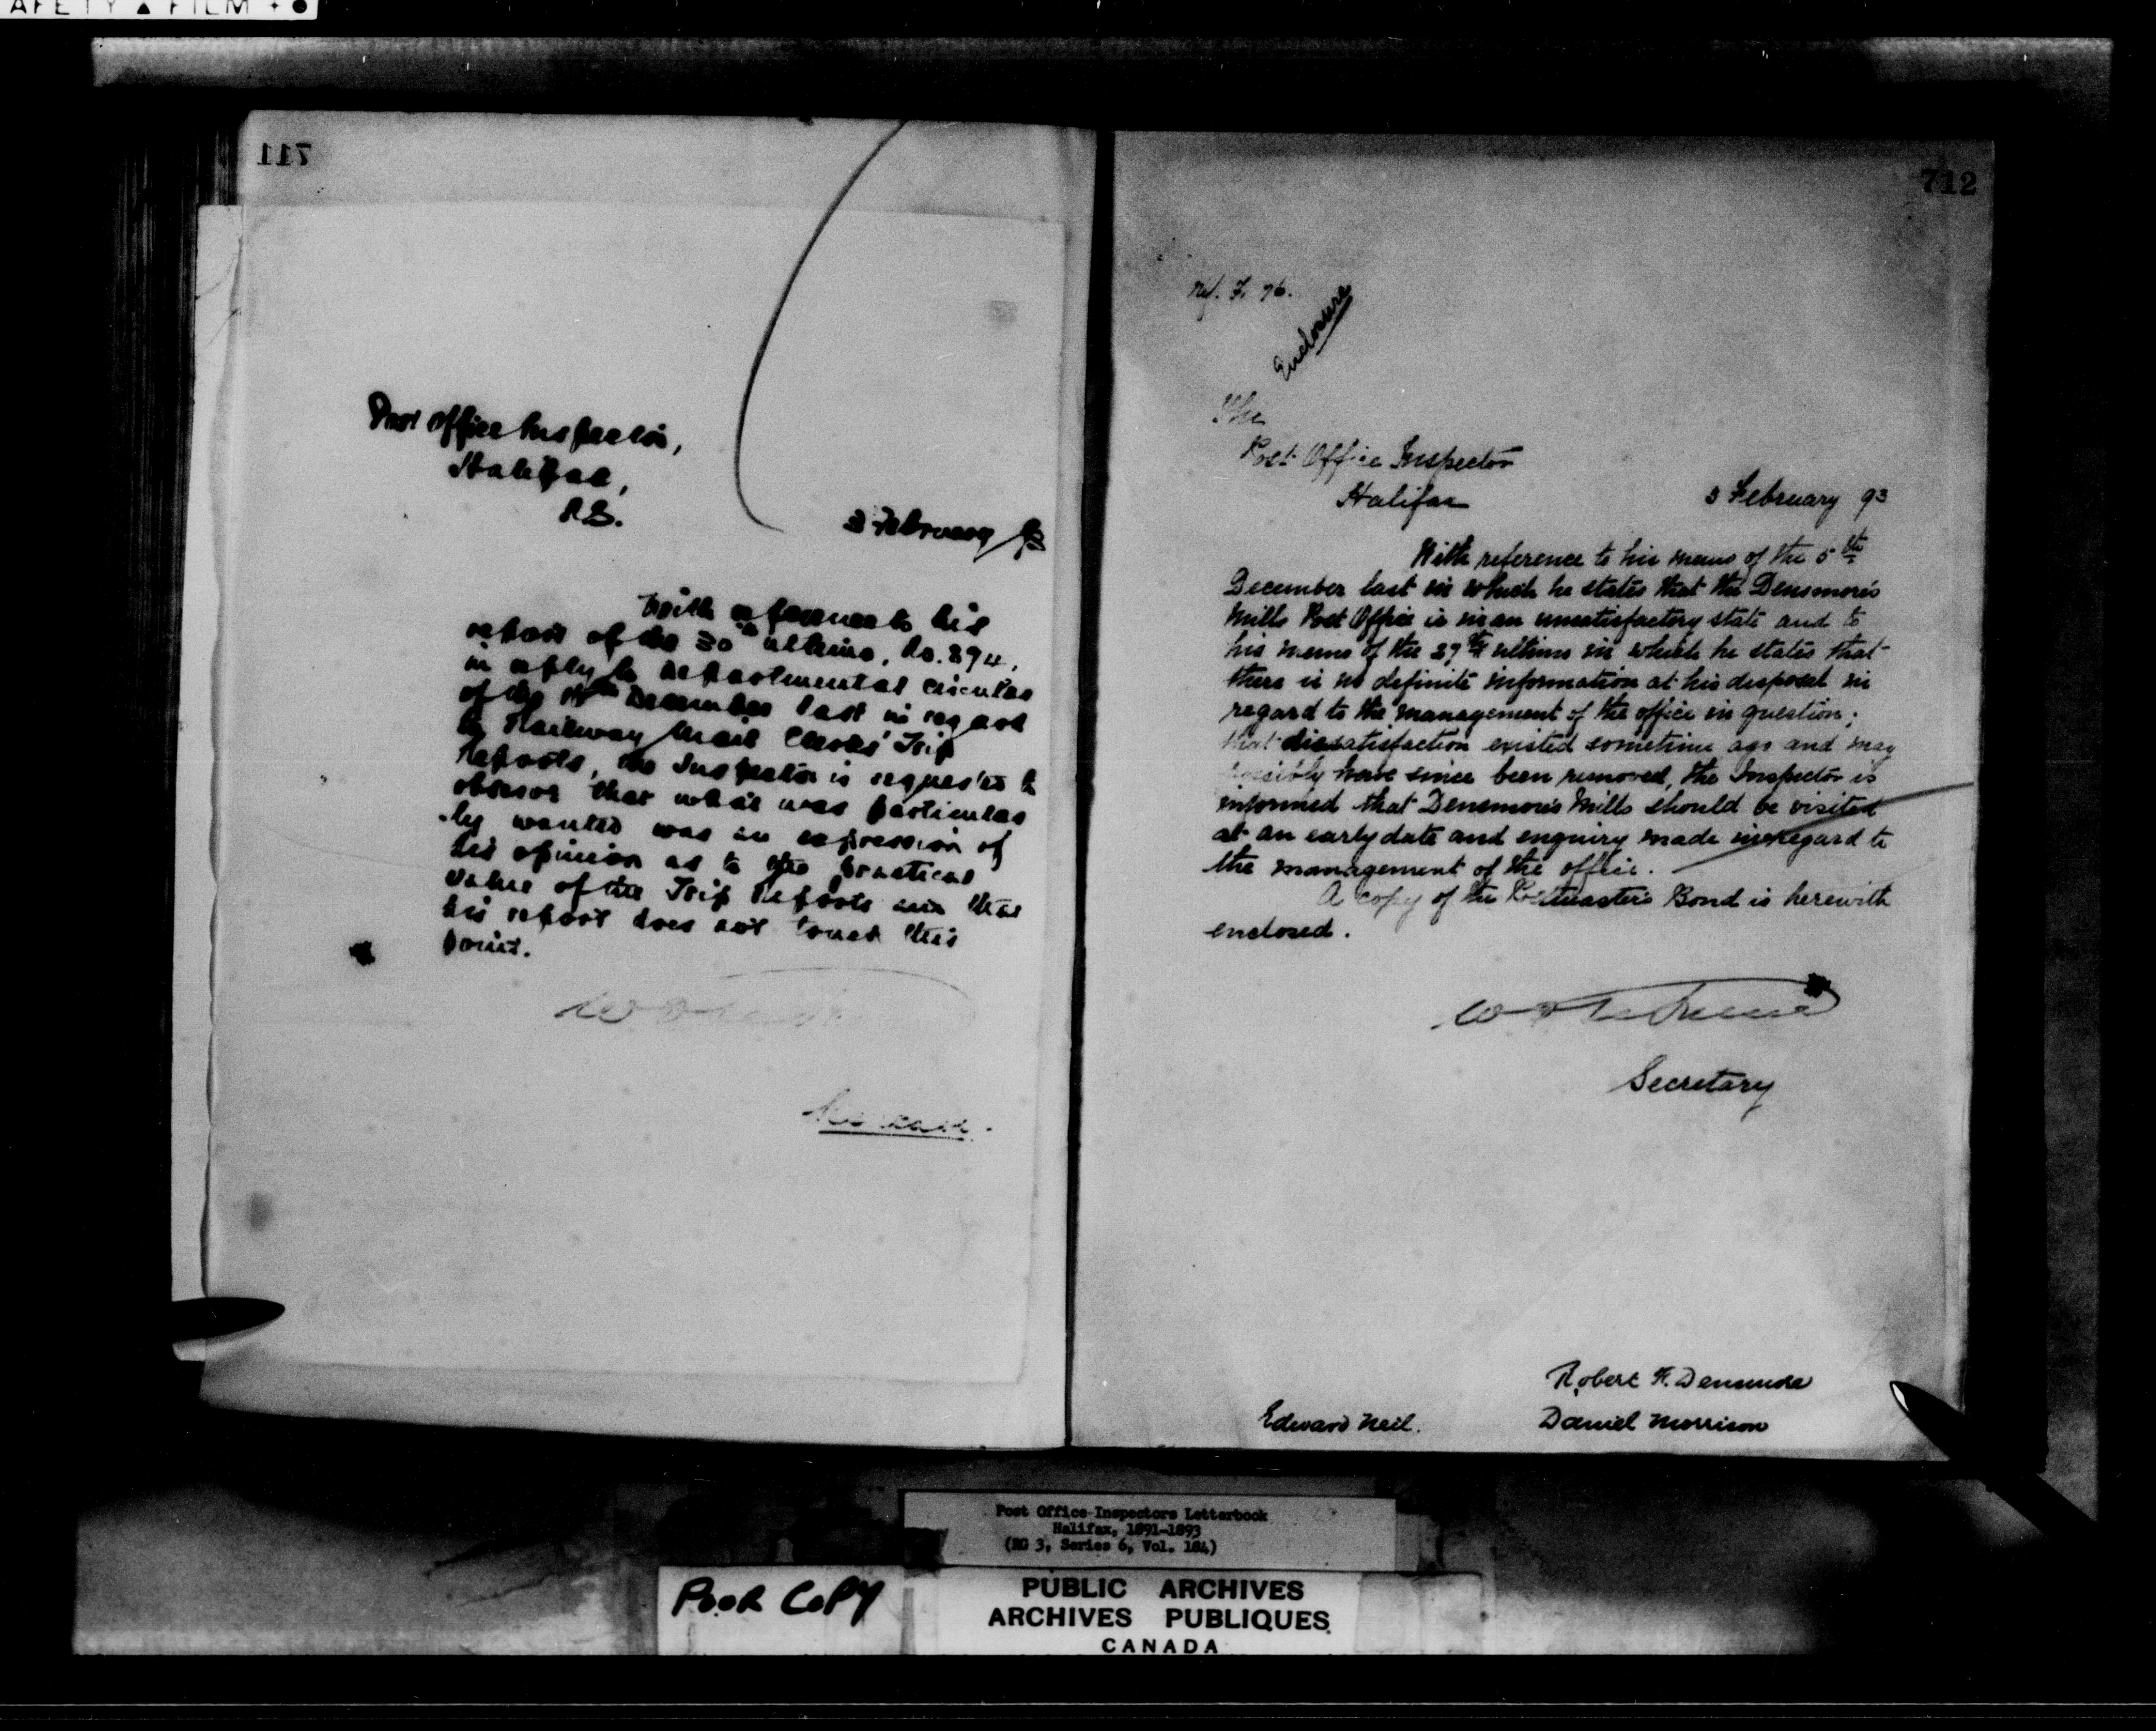 SAFETY FILM
711
Post Office Inspector,
Halifax,
N.S.
3 February 93
With reference to his
report of the 30th ultimo, No. 894,
in reply to Departmental Circular
of the December last in regard
to Railway Mail Clerks' Trip
Reports, the Inspector is requested to
observe that what was particular
-ly wanted was an expression of
his opinion as to the practical
value of the Trip Reports and that
his report does not touch this
point.
712
Ref. F. 76.
Enclosure
The
Post Office Inspector
Halifax
3 February 93
With reference to his memo of the 5th
December last in which he states that the Densmore's
Mills Post Office is in an unsatisfactory state and to
his memo of the 27th ultimo in which he states that
there is no definite information at his disposal in
regard to the management of the office in question;
that dissatisfaction existed sometime ago and may
possibly have since been removed, the Inspector is
informed that Densmore's Mills should be visited
at an early date and enquiry made in regard to
the management of the office.
A copy of the Postmaster's Bond is herewith
enclosed.
Secretary
Robert F. Densmore
Edward Neil.
Daniel Morrison
Post Office Inspectors Letterbook
Halifax, 1891-1893
(RG 3, Series 6, Vol. 184)
POOR COPY
PUBLIC ARCHIVES
ARCHIVES PUBLIQUES
CANADA